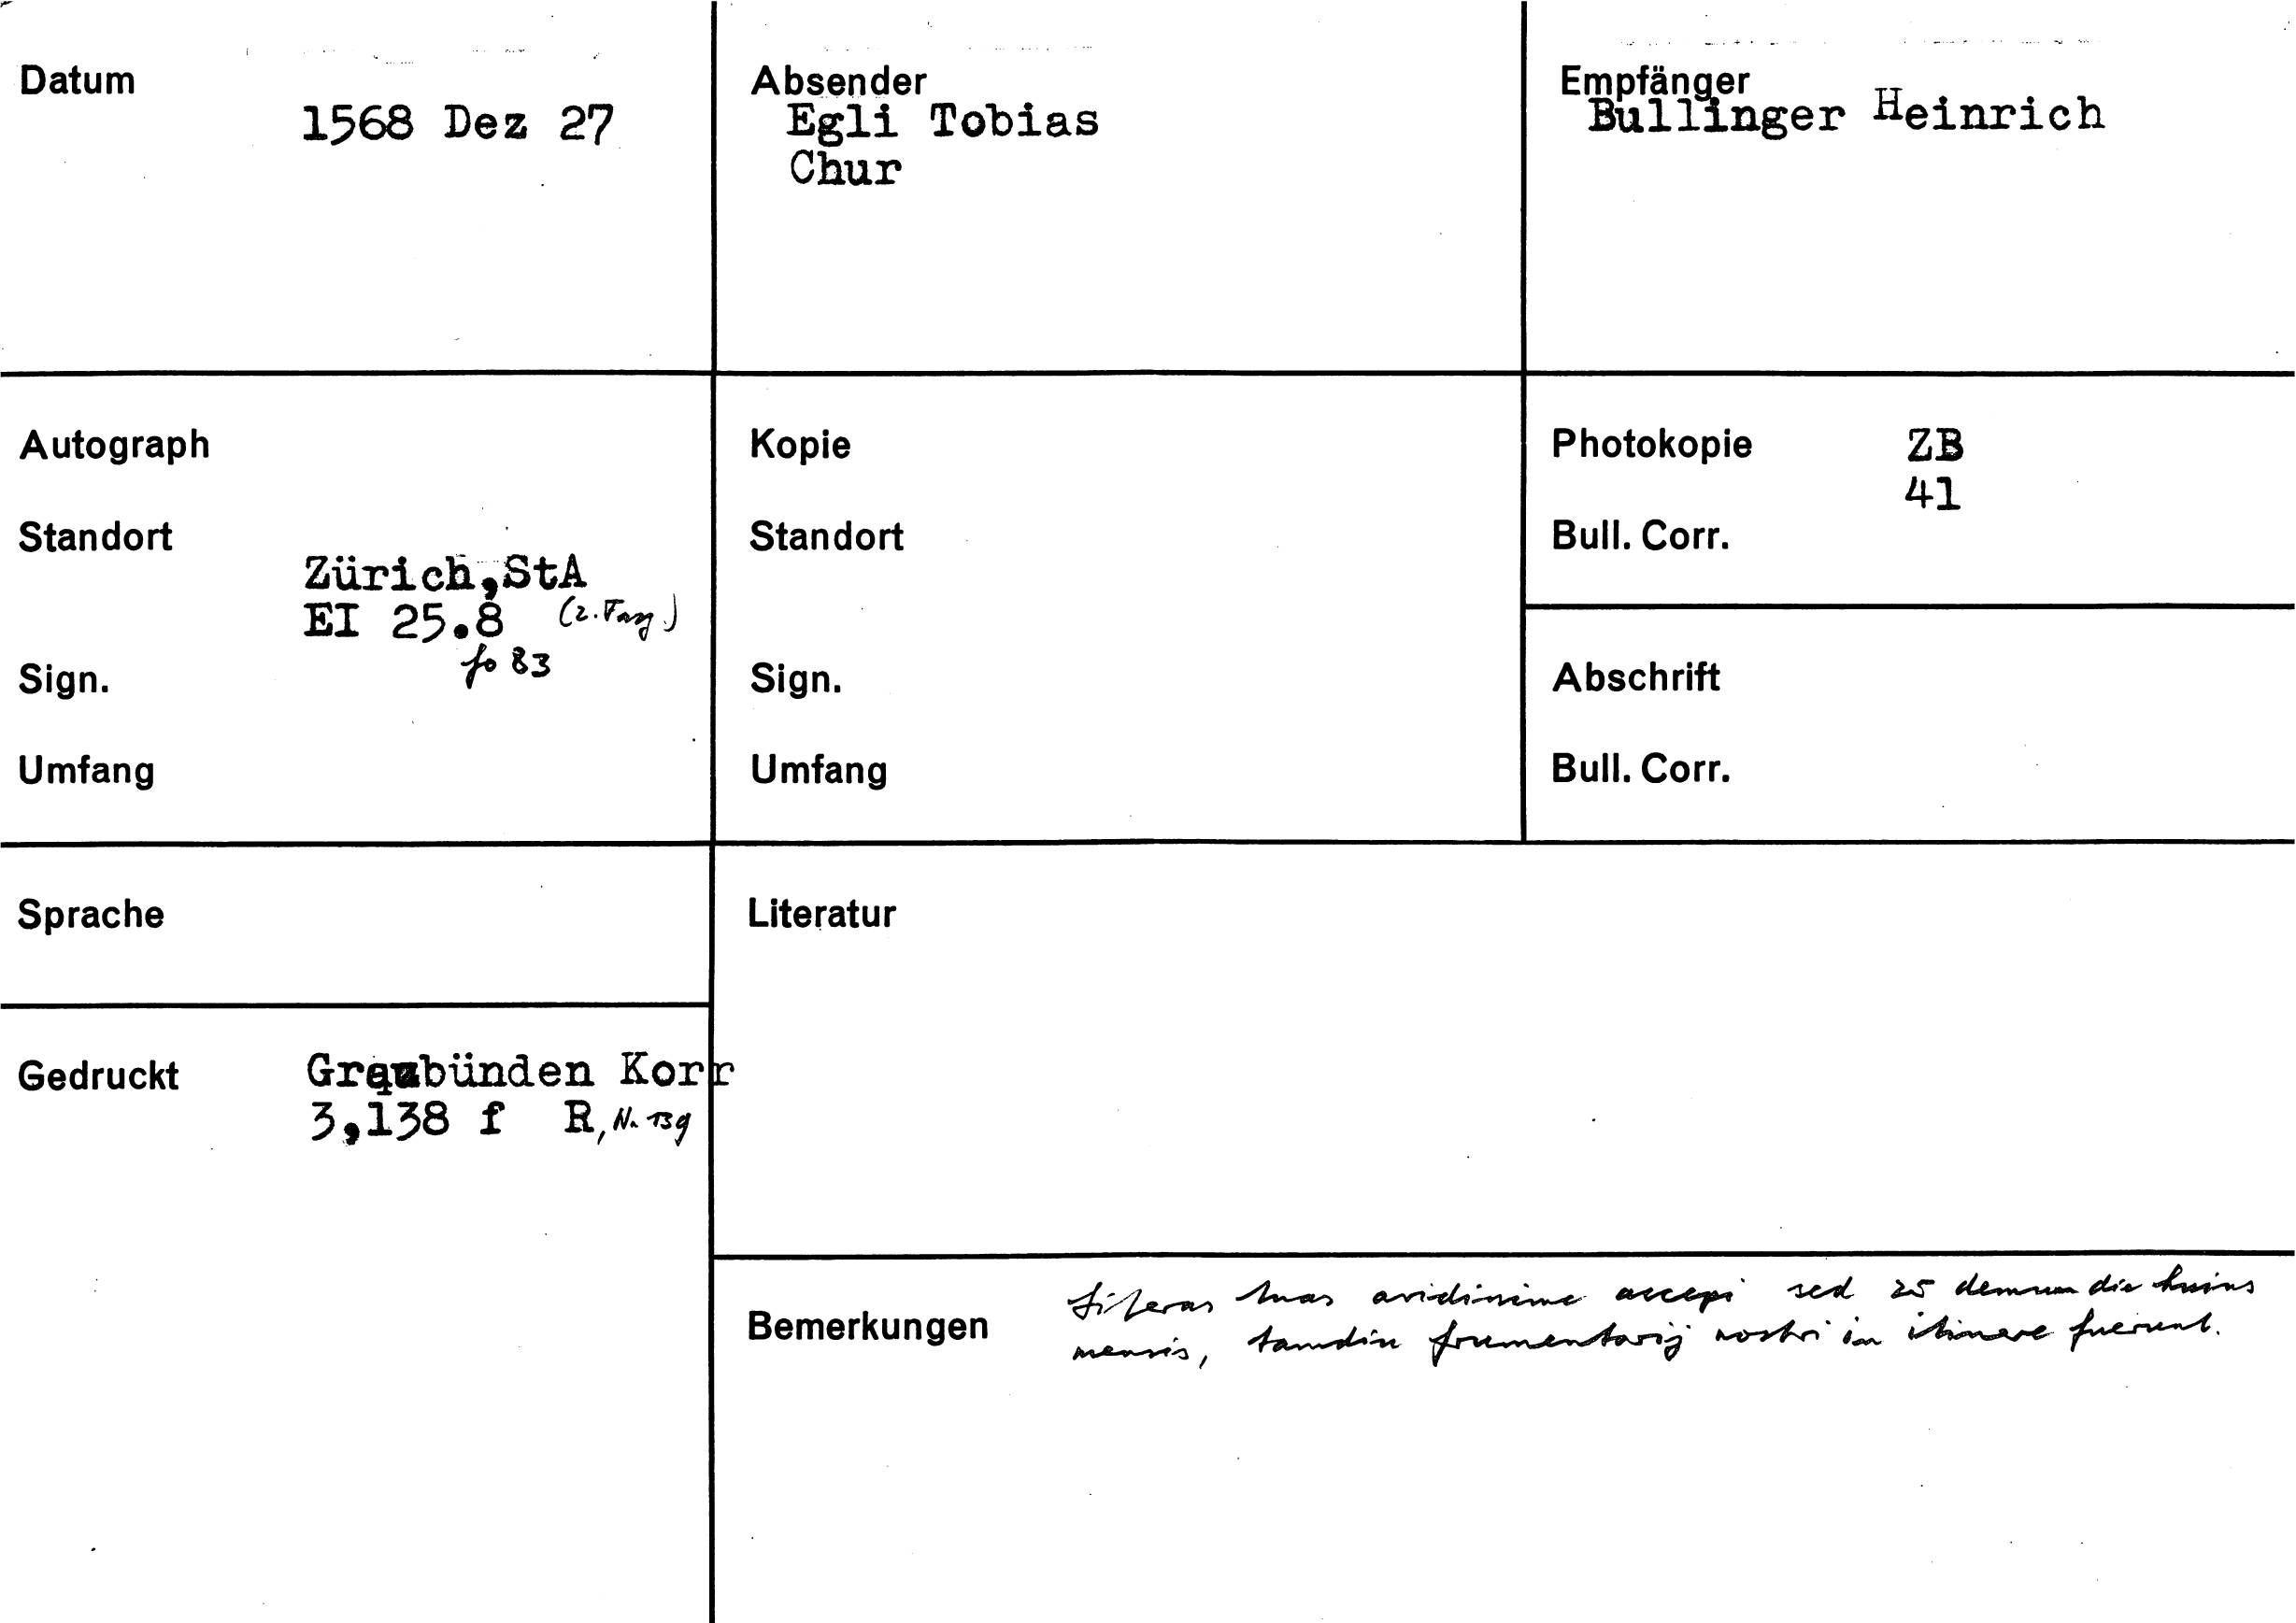 Datum
1568 Dez 27
Absender
Egli Tobias
Chur
Empfänger
Bullinger Heinrich
Autograph
Standort
Zürich,StA
EI 25.8 (2. Fasz.)
fo 83
Sign.
Umfang
Kopie
Standort
Sign.
Umfang
Photokopie ZB
41
Bull. Corr.
Abschrift
Bull. Corr.
Sprache
Gedruckt
Graubünden Korr
3,138 f R, Nr 139
Literatur
Bemerkungen
Literas tuas avidissime accepi sed 25 demum die huius
mensis, tamdiu frumentarij nostri in itinere fuerunt.